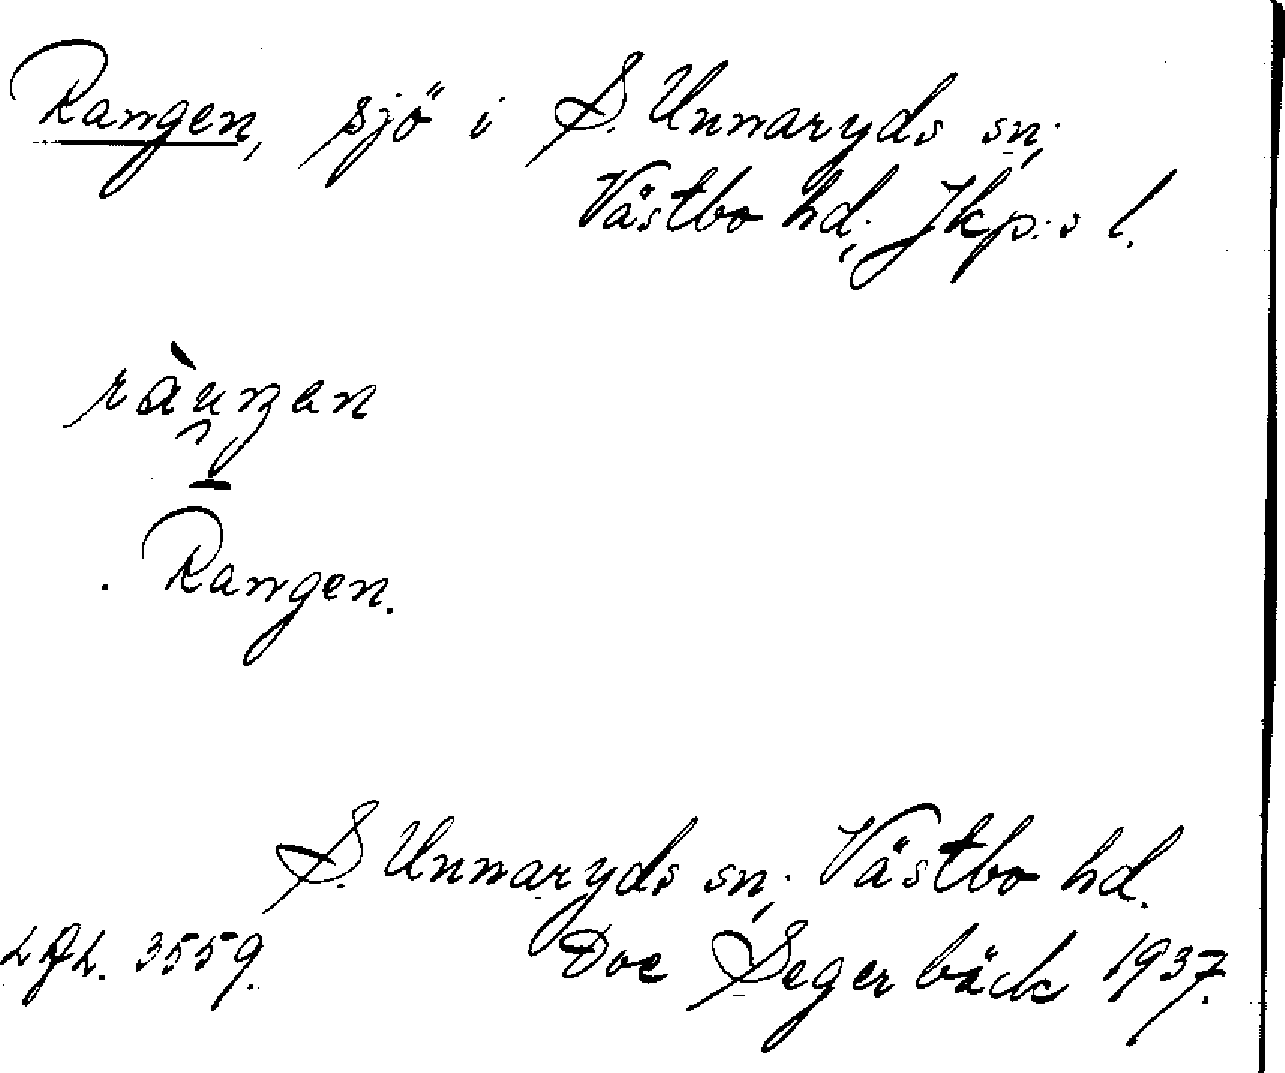 Rangen, sjö i S. Unnaryds sn;
Västbo hd; Jkp:s l.
Rangen.
S. Unnaryds sn; Västbo hd.
3559. Doc Segerbäck 1937.